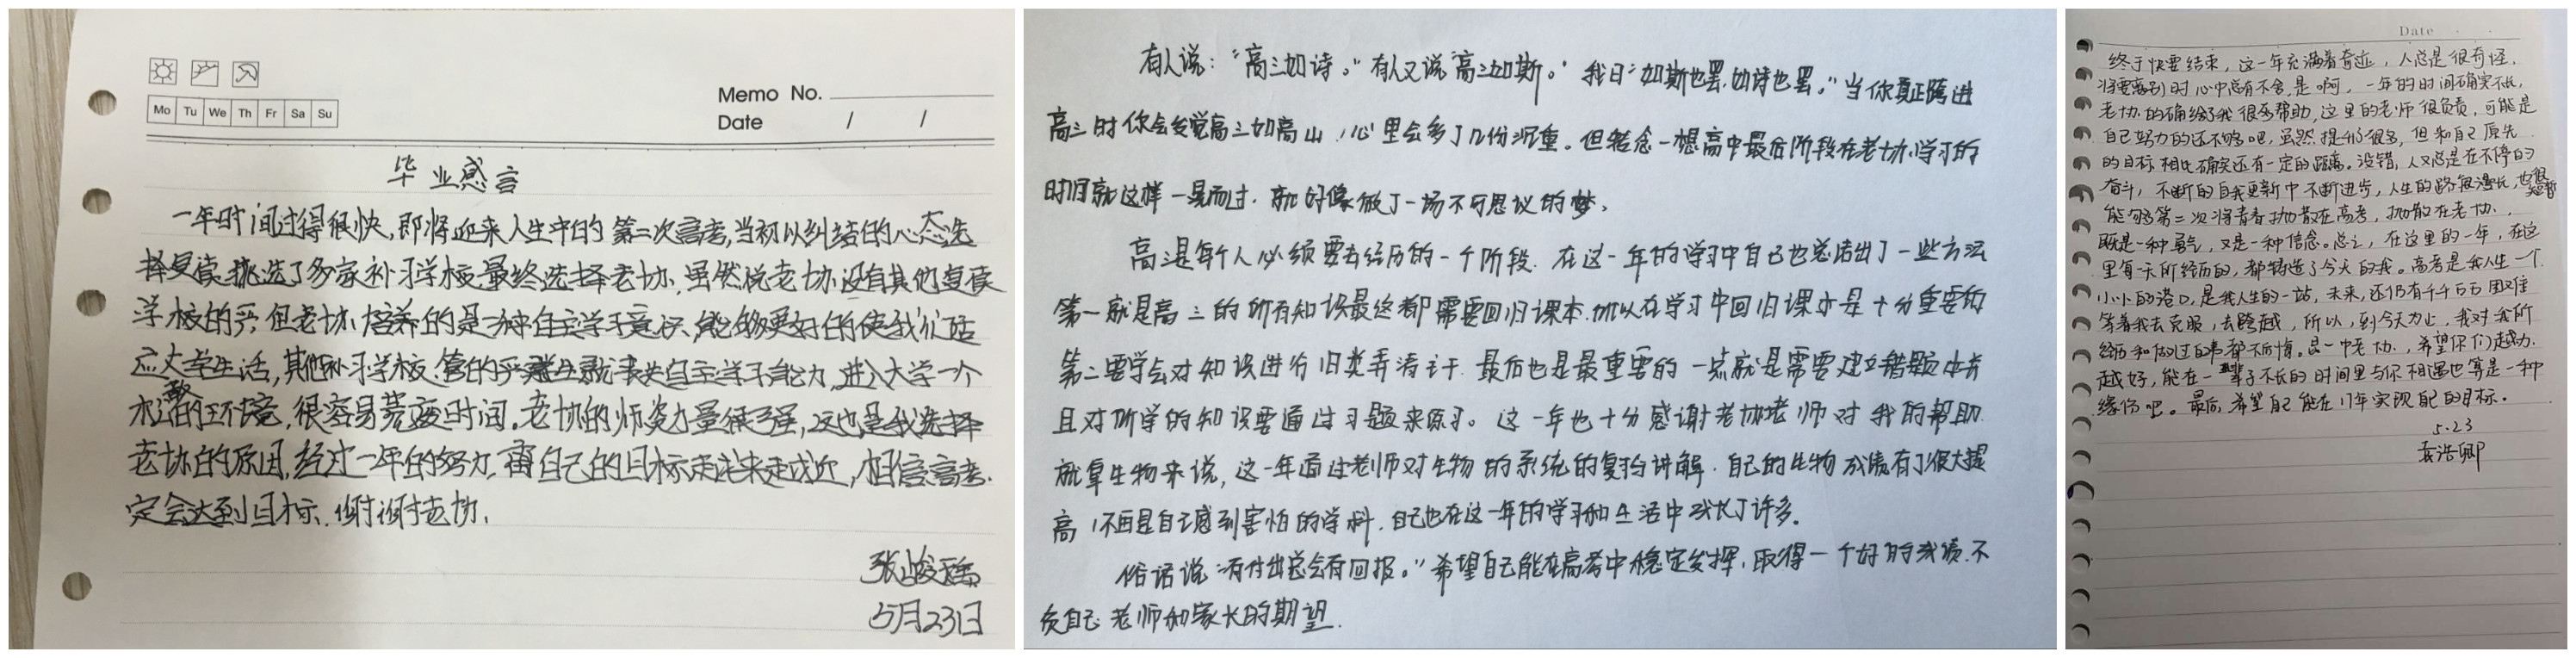 Memo No.
Mo Tu We Th Fr Sa Su
Date / /
毕业感言
一年时间过得很快,即将迎来人生中的第二次高考,当初以纠结的心态选
择复读,挑选了多家补习学校,最终选择老协,虽然说老协没有其他复读
学校的严,但老协培养的是一种自主学习意识,能够更好的使我们适
应大学生活,其他补习学校管的严,学生就丧失自主学习能力,进入大学一个
放松的环境,很容易荒废时间。老协的师资力量很强,这也是我选择
老协的原因,经过一年的努力,离自己的目标走越来走越近,相信高考
定会达到目标,谢谢老协,
5月23日
有人说:“高三如诗。”有人又说“高三如斯。”我曰“如斯也罢,如诗也罢。”当你真正踏进
高三时你会发觉高三如高山,心里会多了几份沉重。但转念一想高中最后阶段在老协学习的
时间就这样一晃而过,就好像做了一场不可思议的梦、
高三是每个人必须要去经历的一个阶段.在这一年的学习中自己也总结出了一些方法
第一就是高三的所有知识最终都需要回归课本,所以在学习中回归课本是十分重要的
第二要学会对知识进行归类弄清主干.最后也是最重要的一点就是需要建立错题本并
且对所学的知识要通过习题来练习。这一年也十分感谢老协老师对我的帮助.
就拿生物来说,这一年通过老师对生物的系统的复习讲解,自己的生物成绩有了很大提
高,不再是自己感到害怕的学科,自己也在这一年的学习和生活中成长了许多。
俗话说“有付出总会有回报。”希望自己能在高考中稳定发挥,取得一个好的成绩,不
负自己老师和家长的期望.
Date
终于快要结束,这一年充满着奇迹,人总是很奇怪,
将要离别时心中总有不舍,是啊,一年的时间确实不长,
老协的确给了我很多帮助,这里的老师很负责,可能是
自己努力的还不够吧,虽然提升了很多,但和自己原先
的目标相比确实还有一定的距离。没错,人又总是在不停的
奋斗,不断的自我更新中不断进步,人生的路很漫长,也很
能够第二次将青春抛散在高考,抛散在老协,
既是一种勇气,又是一种信念。总之,在这里的一年,在这
里每一天所经历的,都铸造了今天的我。高考是我人生一个
小小的港口,是我人生的一站,未来,还仍有千千万万困难
等着我去克服,去跨越,所以,到今天为止,我对我所
经历和做过的事都不后悔。 老协,希望你们越办
越好,能在一 不长的时间里与你相遇也算是一种
缘份吧。最后,希望自己能在17年实现自己的目标。
5.23
袁浩卿